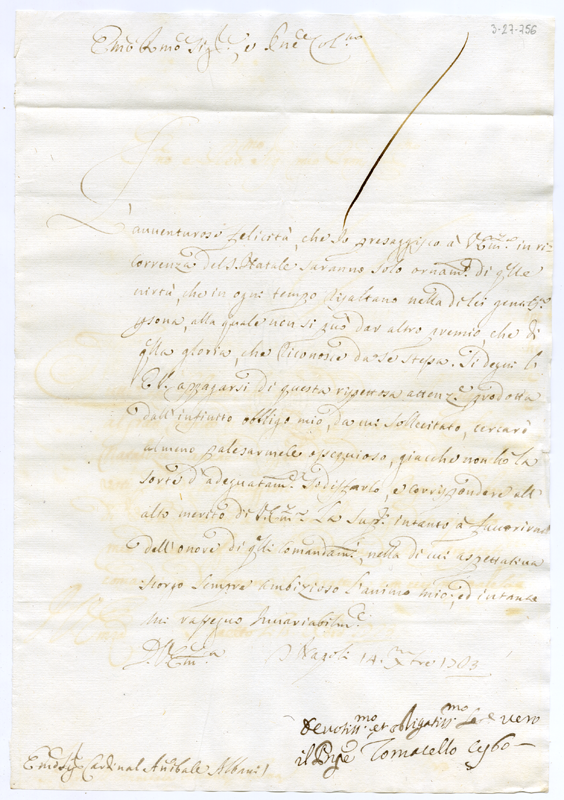 3-27-256
Emo. Rmo. Sig.re, e Pne. Col.mo
L'avventurose felicità che Io presaggisco à V. Em.za in ri-
correnza del S. Natale saranno solo ornam.ti di q.lle
virtù, che in ogni tempo risaltano nella di lei
p.sona, alla quale non si può dar altro premio, che di
q.lla gloria, che riconosce da se stessa. Si degni
E. V. appagarsi di questa rispettosa attenz.e prodotta
dall'infinito obligo mio, da cui sollecitato, cercarò
almeno palesarmele ossequioso, giacche non hò la
sorte d'adeguatam.te sodisfarlo, e corrispondere all'
alto merito di V. Em.za La sup.co intanto à favorirmi
dell'onore di q.lli Comandam.ti, nella di cui aspettativa
sempre ambizioso l'animo mio; ed intanto
mi rassegno invariabilm.te
D. V. Em.za Napoli 14 Xbre
Devotiss.mo et obligatiss.mo Se.e vero
il Pnpe Tomacello Cybo
Emo. Sig.r Cardinal Annibale Albani